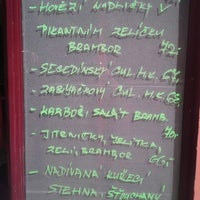 - HOVĚZÍ NADHIČKY V
PIKANTNÍM ZELÍČEM
BRAMBOR 72,-
- SEGEDÍNSKÝ GUL. H.K. 67,-
- ZABIJAČKOVÝ GUL. H.K. 65,-
- KARBOŠ, SALÁT BRAMB.
- JITRNIČKY, JELÍTKA, 70,-
ZELÍ, BRAMBOR 66,-
- NADÍVANÁ KUŘECÍ
STEHNA, ŠŤOUCHANÝ